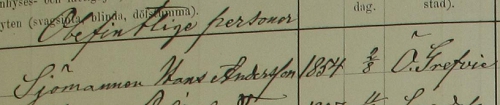 nhyses- och
yten (svagsinta, blinda, döfstumma). dag. stad).
Obefintlige personer
Sjömannen Hans Andersson 1854 2/8 Ö. Grefvie